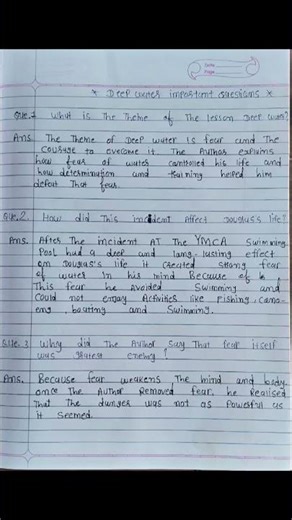 Date
Page
* Deep water important questions *
Que.1 What is The Theme of The lesson Deep water?
Ans. The Theme of Deep water is fear and The
courage to overcome it. The Author explains
how fear of water controlled his life and
how determination and training helped him
defeat That fear.
Que.2 How did This incident Affect Douglus's life?
Ans. After The incident AT The YMCA swimming
Pool had a deep and long-lasting effect
on Douglas's life it created strong fear
of water in his mind Because of
This fear he avoided Swimming and
Could not enjoy Activities like Fishing, Cano-
eng, boating and Swimming.
Que. 3 Why did The Author say That fear itself
was greatest enemy!
Ans. Because fear weakens The mind and body.
once The Author Removed fear, he Realised
That The danger was not as Powerful as
it seemed.